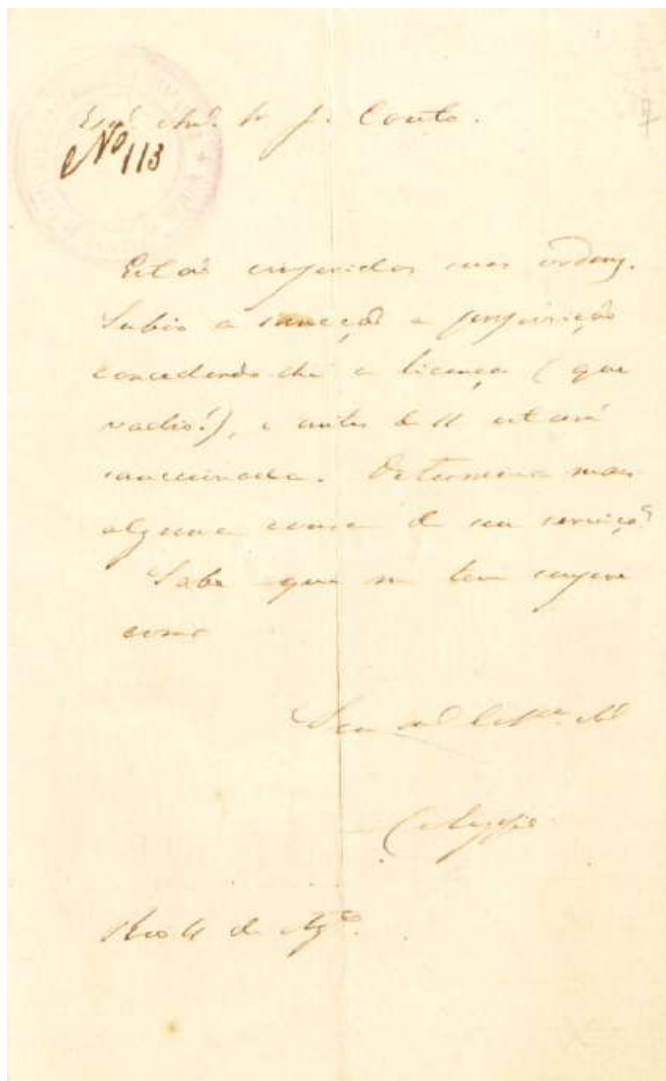 Nº 113
J. Couto.
Estão cumpridas suas ordens.
Subio a sancção a proposição
concedendo-lhe a licença ( que
vadio!), e antes de 11 estará
sanccionada. Determina mais
alguma cousa de seu serviço?
Sabe que me tem sempre
como
Seu
Rio 4 de Agº.